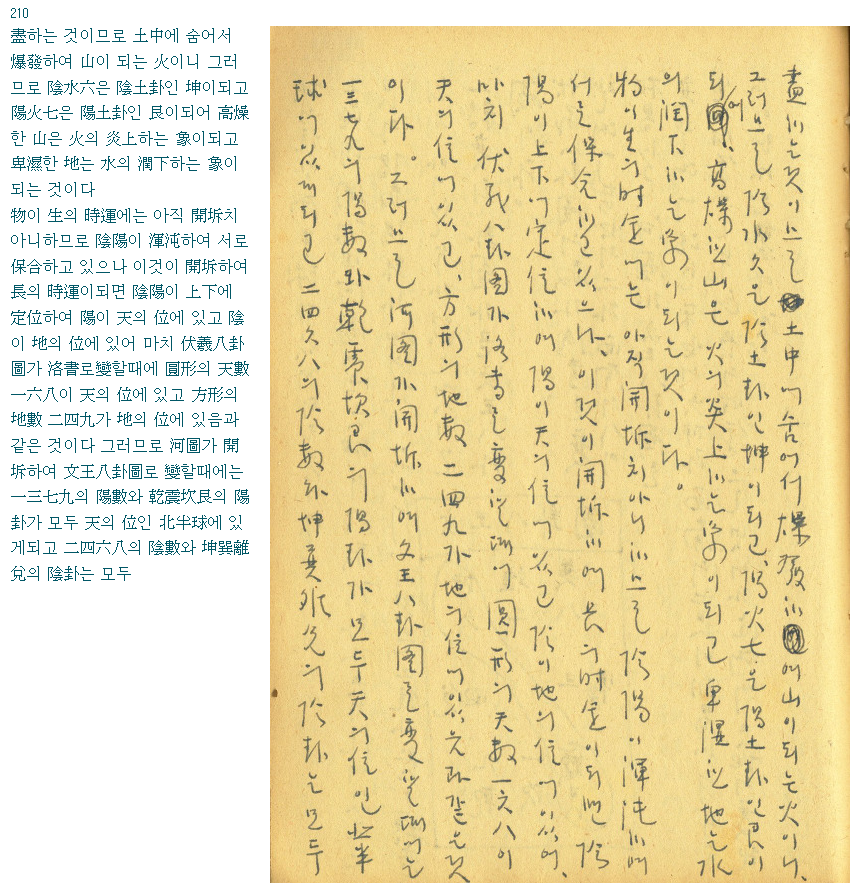 210
盡하는 것이므로 土中에 숨어서
爆發하여 山이 되는 火이니 그러
므로 陰水六은 陰土卦인 坤이되고
陽火七은 陽土卦인 艮이되어 高燥
한 山은 火의 炎上하는 象이되고
卑濕한 地는 水의 潤下하는 象이
되는 것이다
物이 生의 時運에는 아직 開坼치
아니하므로 陰陽이 渾沌하여 서로
保合하고 있으나 이것이 開坼하여
長의 時運이되면 陰陽이 上下에
定位하여 陽이 天의 位에 있고 陰
이 地의 位에 있어 마치 伏羲八卦
圖가 洛書로變할때에 圓形의 天數
一六八이 天의 位에 있고 方形의
地數 二四九가 地의 位에 있음과
같은 것이다 그러므로 河圖가 開
坼하여 文王八卦圖로 變할때에는
一三七九의 陽數와 乾震坎艮의 陽
卦가 모두 天의 位인 北半球에 있
게되고 二四六八의 陰數와 坤巽離
兌의 陰卦는 모두
盡하는것이므로 土中에숨어서 爆發하여山이되는火이니、
그러므로 陰水六은 陰土卦인 坤이되고、陽火七은 陽土卦인艮이
되어、高燥한山은 火의炎上하는象이되고 卑濕한 地는水
의潤下하는象이되는것이다。
物이生의時運에는 아직開坼치아니하므로 陰陽이渾沌하여
서로保合하고있으나、이것이開坼하여 長의時運이되면 陰
陽이上下에定位하여 陽이天의位에있고 陰이地의位에있어、
마치 伏羲八卦圖가洛書로變할때에 圓形의天數 一六八이
天의位에있고、方形의地數 二四九가地의位에있음과같은것
이다。그러므로 河圖가開坼하여 文王八卦圖로變할때에는
一三七九의陽數와 乾震坎艮의陽卦가모두天의位인 北半
球에있게되고 二四六八의陰數와 坤巽離兌의陰卦는모두